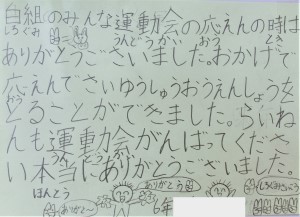 白組のみんな運動会の応えんの時は
しろぐみ
うんどうかい
おう
とき
ありがとうございました。おかげで
応えんでさいゆうしゅうおうえんしょうを
おう
とることができました。らいね
んも運動会がんばってくださ
うんどうかい
い本当にありがとうございました。
ほんとう
ありがとう
ありがと〜
6年